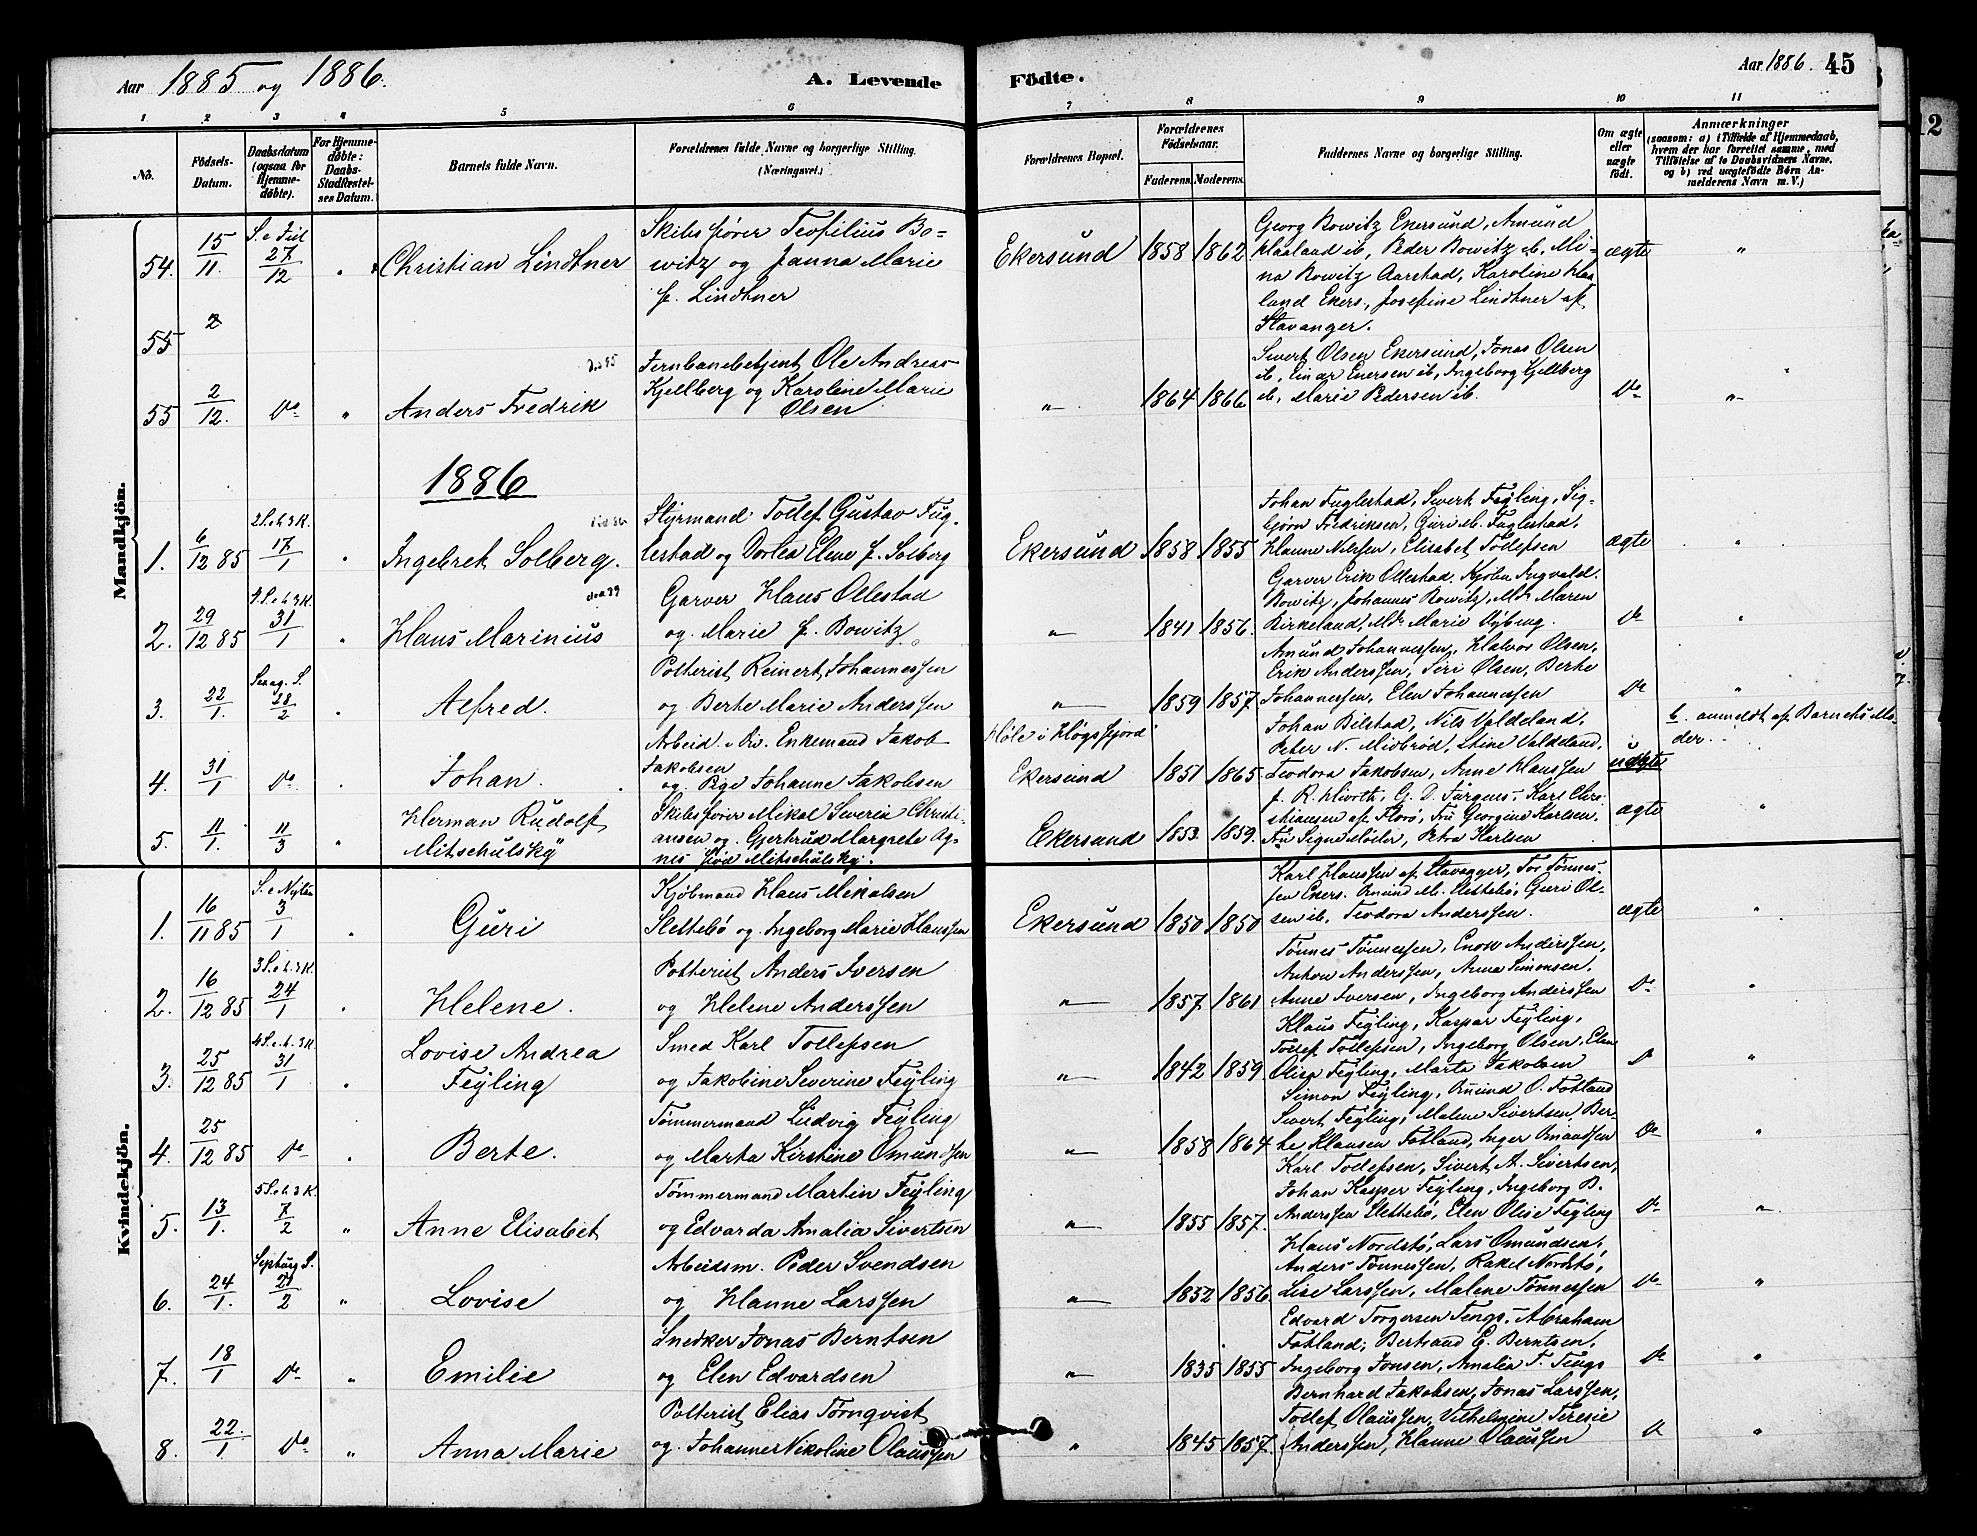 Aar 1885 og 1886.
A. Levende Födte.
Aar 1886. 45
1 2 3 4 5 6 7 8 9 10 11
No.
Födsels-Datum.
Daabsdatum (ogsaa for Hjemme-døbte).
For Hjemme-døbte: Daabs-Stadfæstel-ses Datum.
Barnets fulde Navn.
Forældrenes fulde Navne og borgerlige Stilling. (Næringsvei.)
Forældrenes Bopæl.
Forældrenes Fødselsaar.
Faderens. Moderens.
Faddernes Navne og borgerlige Stilling.
Om ægte eller uægte født.
Anmærkninger
(saasom: a) i Tilfælde af Hjemmedaab,
hvem der har forrettet samme, med
Tilføielse af to Daabsvidners Navne,
og b) ved uægtefødte Børn An-
melderens Navn m. V.)
Mandkjön.
54. 15/11 S. e. Juel 27/12 " Christian Lindtner
Skibsfører Teofilius Bo-
witz og Janna Marie
f. Lindtner
Ekersund 1858 1862
Georg Bowitz Ekersund, Amund
Klaaland ib, Peder Bowitz ib, Mi-
na Bowitz Aarstad, Karoline Klaa-
land Ekers., Josefine Lindtner af
Stavanger.
ægte "
55 2
55 2/12. Do " Anders Fredrik
Jernbanebetjent Ole Andreas
Kjellberg og Karoline Marie
Olsen
" 1864 1866
Sivert Olsen Ekersund, Jonas Olsen
ib, Einar Enersen ib, Ingeborg Kjellberg
ib, Marie Pedersen ib.
Do "
1886
1. 6/12 85 2 S. e. h. 3 K. 17/1 " Ingebret Solberg.
Styrmand Tollef Gustav Fug-
lestad og Dortea Elene f. Solberg
Ekersund 1858 1855
Johan Fuglestad, Sivert Fejling, Sig-
bjørn Fredriksen, Guri M. Fuglestad,
Hanne Nilssen, Elisabet Tollefsen
ægte "
2. 29/12 85 4 S. e. h. 3 K. 31/1 " Hans Marinius
Garver Hans Ollestad
og Marie f. Bowitz
" 1841 1856.
Garver Erik Ollestad, Kjøbm Ingvald
Bowitz, Johannes Bowitz, Md. Maren
Birkeland, Md. Marie Nyberg.
Do "
3. 22/1. Sexag. S. 28/2 " Alfred.
Potterist Reinert Johannessen
og Berte Marie Anderssen
" 1859 1857
Amund Johannessen, Halvor Olsen,
Erik Anderssen, Siri Olsen, Berte
Johannessen, Elen Johannessen
Do "
4. 31/1 Do " Johan.
Arbeid. Enkemand Jakob
Jakobsen
og Pige Johanne Jakobsen
Høle i Høgsfjord
Ekersund 1851 1865
Johan Bilstad, Nils Valdeland,
Peter N. Midbrød, Stine Valdeland,
Teodora Jakobsen, Anne Hanssen
uægte
b. anmeldt af Barnets Mo-
der.
5. 11/1. 11/3 " Herman Rudolf
Mitschulsky
Skibsfører Mikal Severin Christi-
ansen og Gjertrud Margrete Ag-
nes født Mitschulsky.
Ekersund 1853 1859.
f. R. Hiorth, G. D. Jürgens, Karl Chri-
stiansen af Florø, Fru Georgine Karlsen,
Fru Signe Møller, Petra Karlsen
ægte "
Kvindekjön.
1. 16/11 85 S. e. Nytaar 3/1 " Guri
Kjøbmand Hans Mikalsen
Slettebø og Ingeborg Marie Hanssen
Ekersund 1850 1850
Karl Hanssen af Stavanger, Tor Tønnes-
sen Ekers. Omund M. Slettebø, Guri Ol-
sen ib, Teodora Anderssen.
ægte "
2. 16/12 85 3 S. e. h. 3 K. 24/1 " Helene.
Potterist Anders Iversen
og Helene Anderssen
" 1857 1861
Tønnes Tønnessen, Enok Anderssen,
Anton Anderssen, Anna Simonsen,
Anne Iversen, Ingeborg Anderssen
Do "
3. 25/12 85 4 S. e. h. 3 K. 31/1 " Lovise Andrea
Fejling
Smed Karl Tollefsen
og Jakobine Severine Fejling
" 1842 1859
Klaus Fejling, Kaspar Fejling,
Tollef Tollefsen, Ingeborg Olsen, Elen
Olisa Fejling, Marta Jakobsen
Do "
4. 25/12 85 Do " Berte.
Tømmermand Ludvig Fejling
og Marta Kirstine Omundsen
" 1858 1864
Simon Fejling, Omund O. Fotland
Sivert Fejling, Malene Sivertsen, Ber-
te Klausen Fotland, Inger Omundsen
Do "
5. 13/1. 5 S. e. h. 3 K. 7/2 " Anne Elisabet
Tømmermand Martin Fejling
og Edvarda Amalia Sivertsen
" 1855 1857.
Karl Tollefsen, Sivert A. Sivertsen,
Johan Kasper Fejling, Ingeborg B.
Anderssen Slettebø, Elen Olise Fejling
Do "
6. 24/1. Septuag S. 21/2 " Lovise
Arbeidsm. Peder Svendsen
og Hanne Larssen
" 1852 1856
Hans Nordstø, Lars Omundsen,
Anders Tønnessen, Rakel Nordstø,
Lise Larssen, Malene Tønnessen
Do "
7. 18/1 Do " Emilie
Snedker Jonas Berntsen
og Elen Edvardsen
" 1835 1855
Edvard Torgersen Tengs, Abraham
Fotland, Bertrand E. Berntsen,
Ingeborg Jonsen, Amalia T. Tengs
Do "
8. 22./1 Do " Anna Marie
Potterist Elias Tørnqvist
og Johanne Nikoline Olaussen
" 1845 1857.
Bernhard Jakobsen, Jonas Larssen,
Tollef Olaussen, Vilhelmine Teresie
Anderssen, Hanne Olaussen
Do "
12